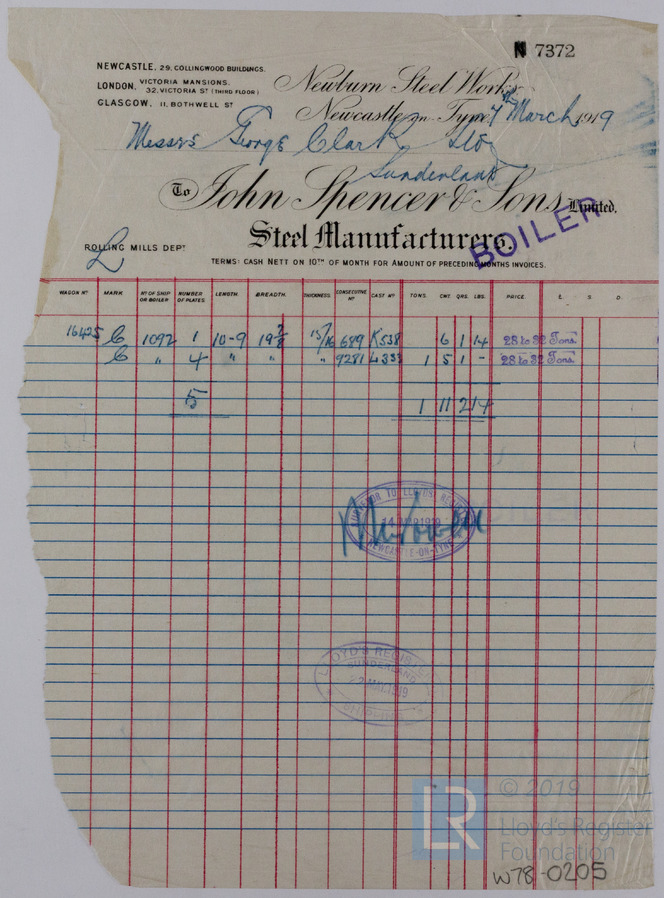 N 7372
NEWCASTLE, 29, COLLINGWOOD BUILDINGS.
LONDON, VICTORIA MANSIONS, 32, VICTORIA ST (THIRD FLOOR)
GLASGOW, 11, BOTHWELL ST
Newburn Steel Works,
Newcastle on Tyne, March 1919
Messrs George Clark Ltd
Sunderland
To John Spencer & Sons, Limited.
Steel Manufacturers.
BOILER
ROLLING MILLS DEPT
L
TERMS: CASH NETT ON 10TH OF MONTH FOR AMOUNT OF PRECEDING MONTHS INVOICES.
WAGON NO MARK NO OF SHIP OR BOILER NUMBER OF PLATES. LENGTH. BREADTH. THICKNESS. CONSECUTIVE NO CAST NO TONS. CWT. QRS. LBS. PRICE. £. S. D.
16425 C 1092 1 10-9 19 7/8 15/16 689 K538 6 1 14 28 to 32 Tons.
C " 4 " " " 9281 L333 1 5 1 - 28 to 32 Tons.
5 1 11 2 14
SURVEYOR TO LLOYDS REGISTER
14 MAR 1919
NEWCASTLE-ON-TYNE
LLOYD'S REGISTER
SUNDERLAND
MAY. 1919
SHIPPING
LR
© 2019
Lloyd's Register
Foundation
W78-0205